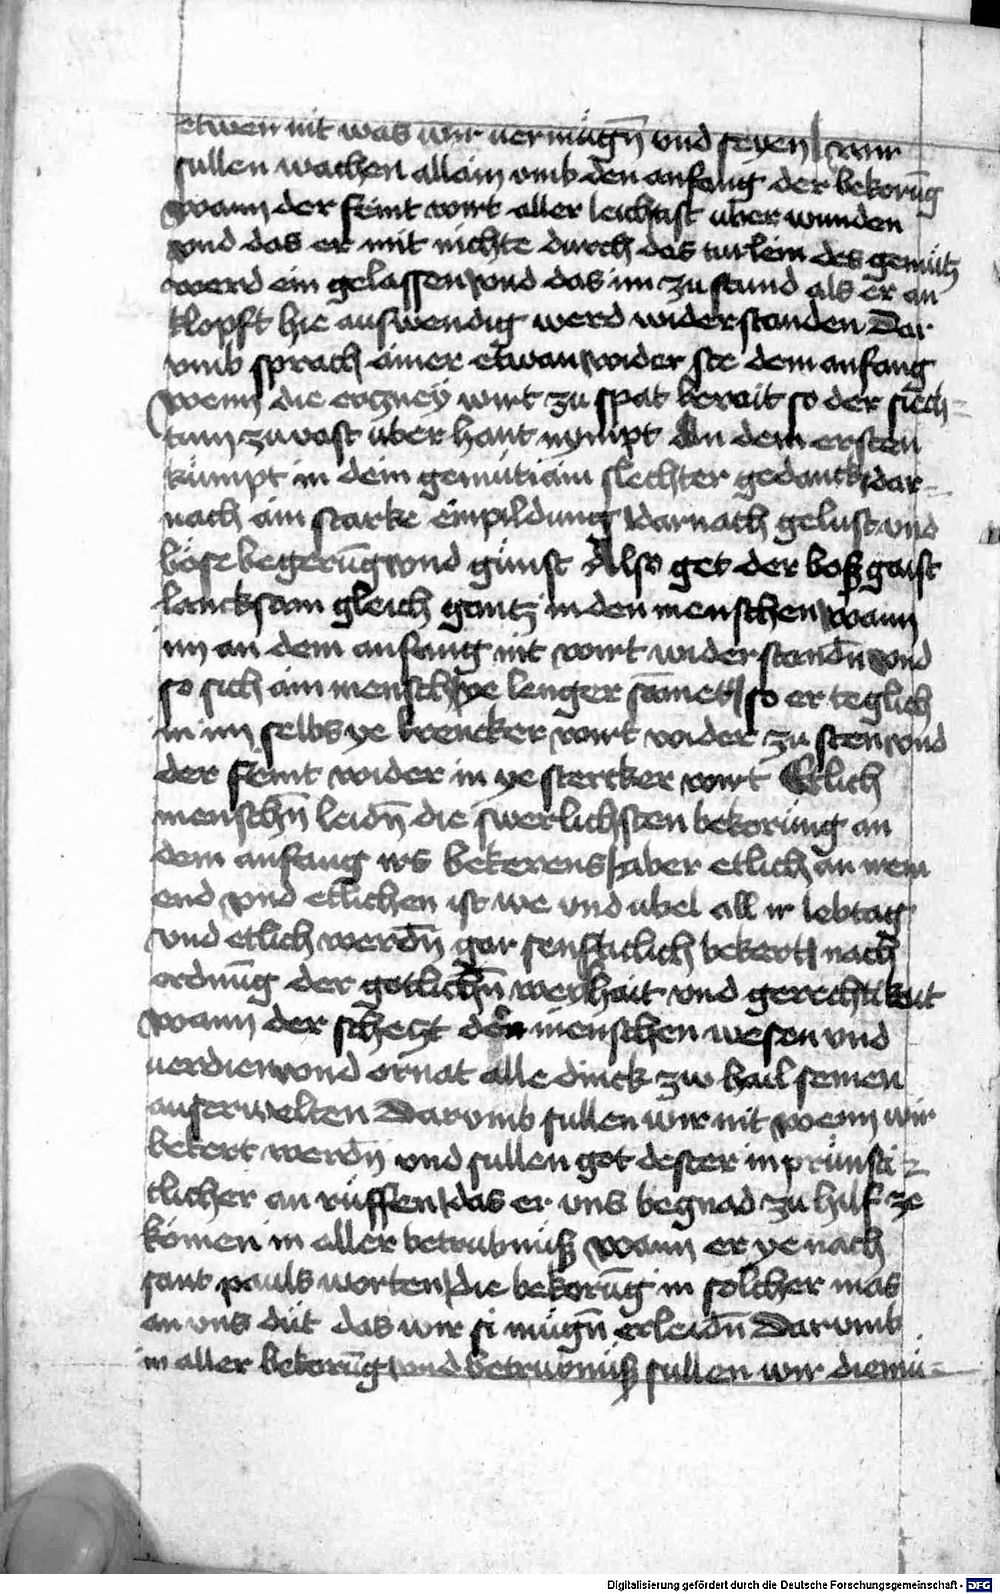 etwen nit was wir vermügn̄ vnd seyen / wir
sullen wachen allain vmb den anfang der bekorūg
wann der feint wirt aller leichtist uber wunden
vnd das er mit nichte durch das turlein des gemütz
werd ein gelassen / vnd das im zu stund als er an
klopft hie auswendig werd widerstanden Dar
vmb sprach ainer etwan / wider ste dem anfang
wenn die erczney wirt zu spat berait so der siech=
tum zuvast uber hant nympt An dem ersten
kümpt in dein gemüt / ain slechter gedanck / dar=
nach ain starke einpildung / darnach gelust vnd
böse begerūg vnd günst Also get der boß gaist
lancksam gleich gantz in den menschen / wann
im an dem anfang nit wirt widerstandn̄ vnd
so sich ain mensch / ye lenger sāmet / so er teglich
in im selbs ye krencker wirt wider zu sten vnd
der feint wider in ye stercker wirt Etlich
menschn̄ leidn̄ die swerlichsten bekorung an
dem anfang irs bekerens / aber etlich an irem
end vnd etlichen ist we vnd ubel all ir lebtag
vnd etlich werdn̄ gar senftiklich bekort / nach
ordnūg der gotlichn̄ weyshait vnd gerechtikait
wann der schetzt der menschen wesen vnd
verdien vnd ornat alle dinck zw hail seinen
auserwelten Darvmb sullen wir nit wenn wir
bekort werdn̄ vnd sullen got dester inprünsti=
klicher an rüffen / das er vns begnad zu hilf ze
kömen in aller betrubnuß wann er ye nach
sant pauls worten / die bekorūg in solcher mas
an vns düt das wir si mügn̄ erleidn̄ Darvmb
in aller bekorūg vnd betrubnuß sullen wir diemü=
Digitalisierung gefördert durch die Deutsche Forschungsgemeinschaft - DFG